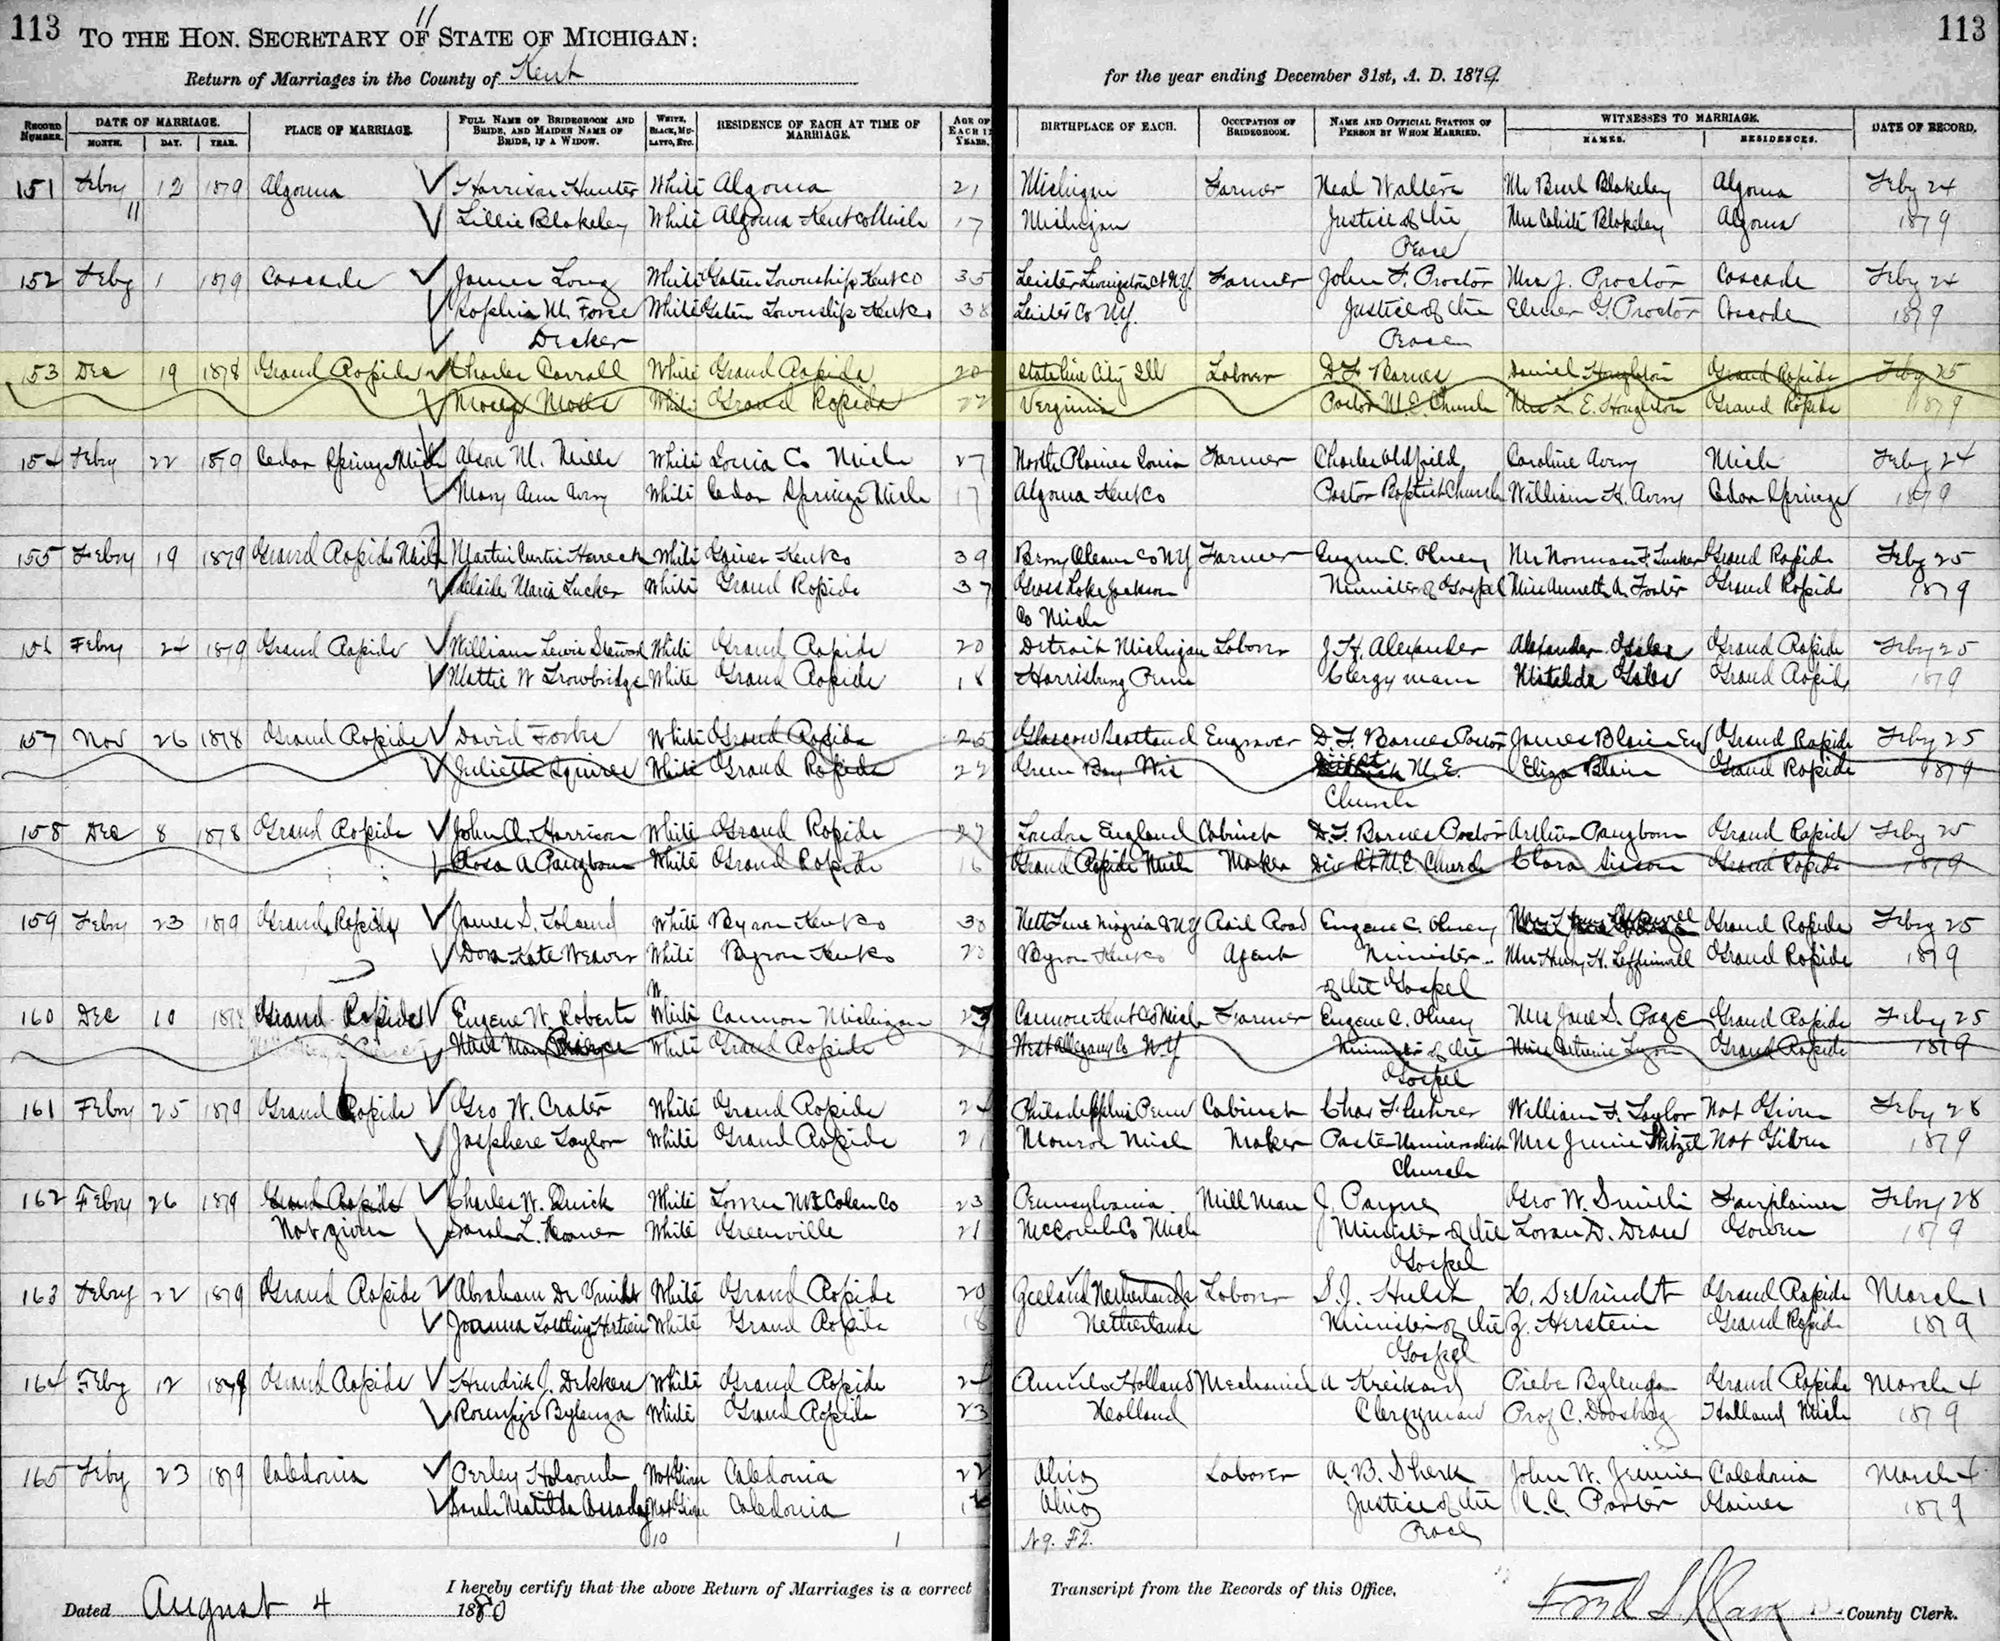 113 TO THE HON. SECRETARY OF STATE OF MICHIGAN: 113
Return of Marriages in the County of Kent for the year ending December 31st, A. D. 1879.
RECORD NUMBER. DATE OF MARRIAGE. MONTH. DAY. YEAR. PLACE OF MARRIAGE. FULL NAME OF BRIDEGROOM AND BRIDE, AND MAIDEN NAME OF BRIDE, IF A WIDOW. WHITE, BLACK, MULATTO, ETC. RESIDENCE OF EACH AT TIME OF MARRIAGE. AGE OF EACH IN YEARS. BIRTHPLACE OF EACH. OCCUPATION OF BRIDEGROOM. NAME AND OFFICIAL STATION OF PERSON BY WHOM MARRIED. WITNESSES TO MARRIAGE. NAMES. RESIDENCES. DATE OF RECORD.
151 Feby 12 1879 Algoma Harrison Hunter White Algoma 21 Michigan Farmer Neal Walters Mr Burl Blakeley Algoma Feby 24
" Lillie Blakeley White Algoma Kent Co Mich 17 Michigan Justice of the Mrs Blakeley Algoma 1879
Peace
152 Feby 1 1879 Cascade James Long White Township Kent Co 35 Leister Livingston Ct N.Y. Farmer John F. Proctor Mrs J. Proctor Cascade Feby 24
Sophia M. Force White Township Kent Co 38 Leister Co N.Y. Justice of the Elmer G. Proctor Cascade 1879
Decker Peace
153 Dec 19 1878 Grand Rapids Charles Carroll White Grand Rapids 20 State Line City Ill Laborer D. F. Barnes Daniel Houghton Grand Rapids Feby 25
White Grand Rapids 22 Verginia Pastor M. E. Church Mrs L. E. Houghton Grand Rapids 1879
154 Feby 22 1879 Cedar Springs Mich M. Mills White Ionia Co Mich 27 North Plaines Ionia Farmer Charles Oldfield Caroline Avery Mich Feby 24
Mary Ann Avery White Cedar Springs Mich 17 Algoma Kent Co Pastor Baptist Church William H. Avery Cedar Springs 1879
155 Feby 19 1879 Grand Rapids Mich Martin Curtis White Gaines Kent Co 39 Co N.Y. Farmer Eugene C. Olney Mr Norman F. Tucker Grand Rapids Feby 25
Adelaide Maria Tucker White Grand Rapids 37 Grass Lake Jackson Minister of Gospel Miss Annette A. Foster Grand Rapids 1879
Co Mich
156 Feby 24 1879 Grand Rapids William Lewis White Grand Rapids 20 Detroit Michigan Laborer J. H. Alexander Alexander Grand Rapids Feby 25
Mattie W Trowbridge White Grand Rapids 18 Harrisburg Penn Clergyman Matilda Grand Rapids 1879
157 Nov 26 1878 Grand Rapids David Forbs White Grand Rapids 25 Glascow Scotland Engraver D. F. Barnes Pastor James Blain Grand Rapids Feby 25
Juliette Squires White Grand Rapids 22 Green Bay Wis M. E. Eliza Blain Grand Rapids 1879
Church
158 Dec 8 1878 Grand Rapids John A. Harrison White Grand Rapids 27 London England Cabinet D. F. Barnes Pastor Arthur Pangborn Grand Rapids Feby 25
Rosa A Pangborn White Grand Rapids 16 Grand Rapids Mich Maker Div St M. E. Church Clara Sisson Grand Rapids 1879
159 Feby 23 1879 Grand Rapids James S. Toland White Byron Kent Co 30 N.Y. Rail Road Eugene C. Olney Grand Rapids Feby 25
Dora Kate Weaver White Byron Kent Co 20 Byron Kent Co Agent Minister Mrs Henry H. Leffinwell Grand Rapids 1879
of the Gospel
160 Dec 10 1878 Grand Rapids Eugene W. Roberts White Cannon Michigan 23 Cannon Kent Co Mich Farmer Eugene C. Olney Mrs Jane S. Page Grand Rapids Feby 25
White Grand Rapids 21 West Allegany Co N.Y. Minister of the Miss Catherine Lyon Grand Rapids 1879
Gospel
161 Feby 25 1879 Grand Rapids Geo W. Crater White Grand Rapids 24 Philadelphia Penn Cabinet Chas Fluhrer William F. Taylor Not Given Feby 28
Josephere Taylor White Grand Rapids 21 Monroe Mich Maker Pastor Universalist Mrs Jennie Not Given 1879
Church
162 Feby 26 1879 Grand Rapids Charles W. Quick White 23 Pennsylvania Mill Man J. Payne Geo W. Smith Fairplaines Feby 28
Not given Sarah L. White Greenville 21 Co Mich Minister of the Loran D. Drew Gowen 1879
Gospel
163 Feby 22 1879 Grand Rapids Abraham De White Grand Rapids 20 Zeeland Netherlands Laborer S. J. Hulst H. DeVrindt Grand Rapids March 1
Joanna White Grand Rapids 18 Netherlands Minister of the Z. Herstein Grand Rapids 1879
Gospel
164 Feby 12 1879 Grand Rapids Hendrik J. Dekker White Grand Rapids 24 Holland Mechanick A Kreikard Piebe Bylenga Grand Rapids March 4
Bylenga White Grand Rapids 23 Holland Clergyman Prof C. Doesburg Holland Mich 1879
165 Feby 23 1879 Caledonia Perley Holcomb Not Given Caledonia 22 Ohio Laborer A. B. Sherk John W. Caledonia March 4
Sarah Matilda Not Given Caledonia Ohio Justice of the C. C. Porter Gaines 1879
10 1 N 9. F 2. Peace
I hereby certify that the above Return of Marriages is a correct Transcript from the Records of this Office.
Dated August 4 1880 County Clerk.